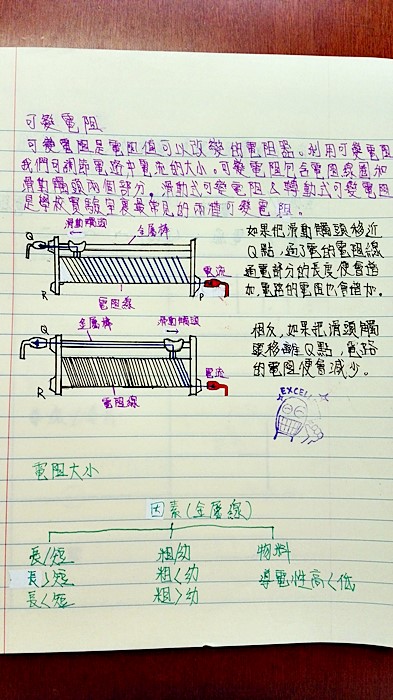 可變電阻
可變電阻是電阻值可以改變的電阻器。利用可變電阻
我們可調節電路中電流的大小。可變電阻包含電阻線圈和
滑動觸頭兩個部分。滑動式可變電阻&轉動式可變電阻
是學校實驗室裏最常見的兩種可變電阻。
滑動觸頭
金屬棒
Q
電流
R
P
電阻線
如果把滑動觸頭移近
Q點,通了電的電阻線
通電部分的長度便會增
加,電路的電阻也會增加。
金屬棒
滑動觸頭
Q
電流
R
電阻線
相反,如果把滑頭觸
頭移離Q點,電路
的電阻便會減少。
EXCELL
電阻大小
因素(金屬線)
長/短
粗/幼
物料
長>短
粗<幼
導電性高<低
長<短
粗>幼